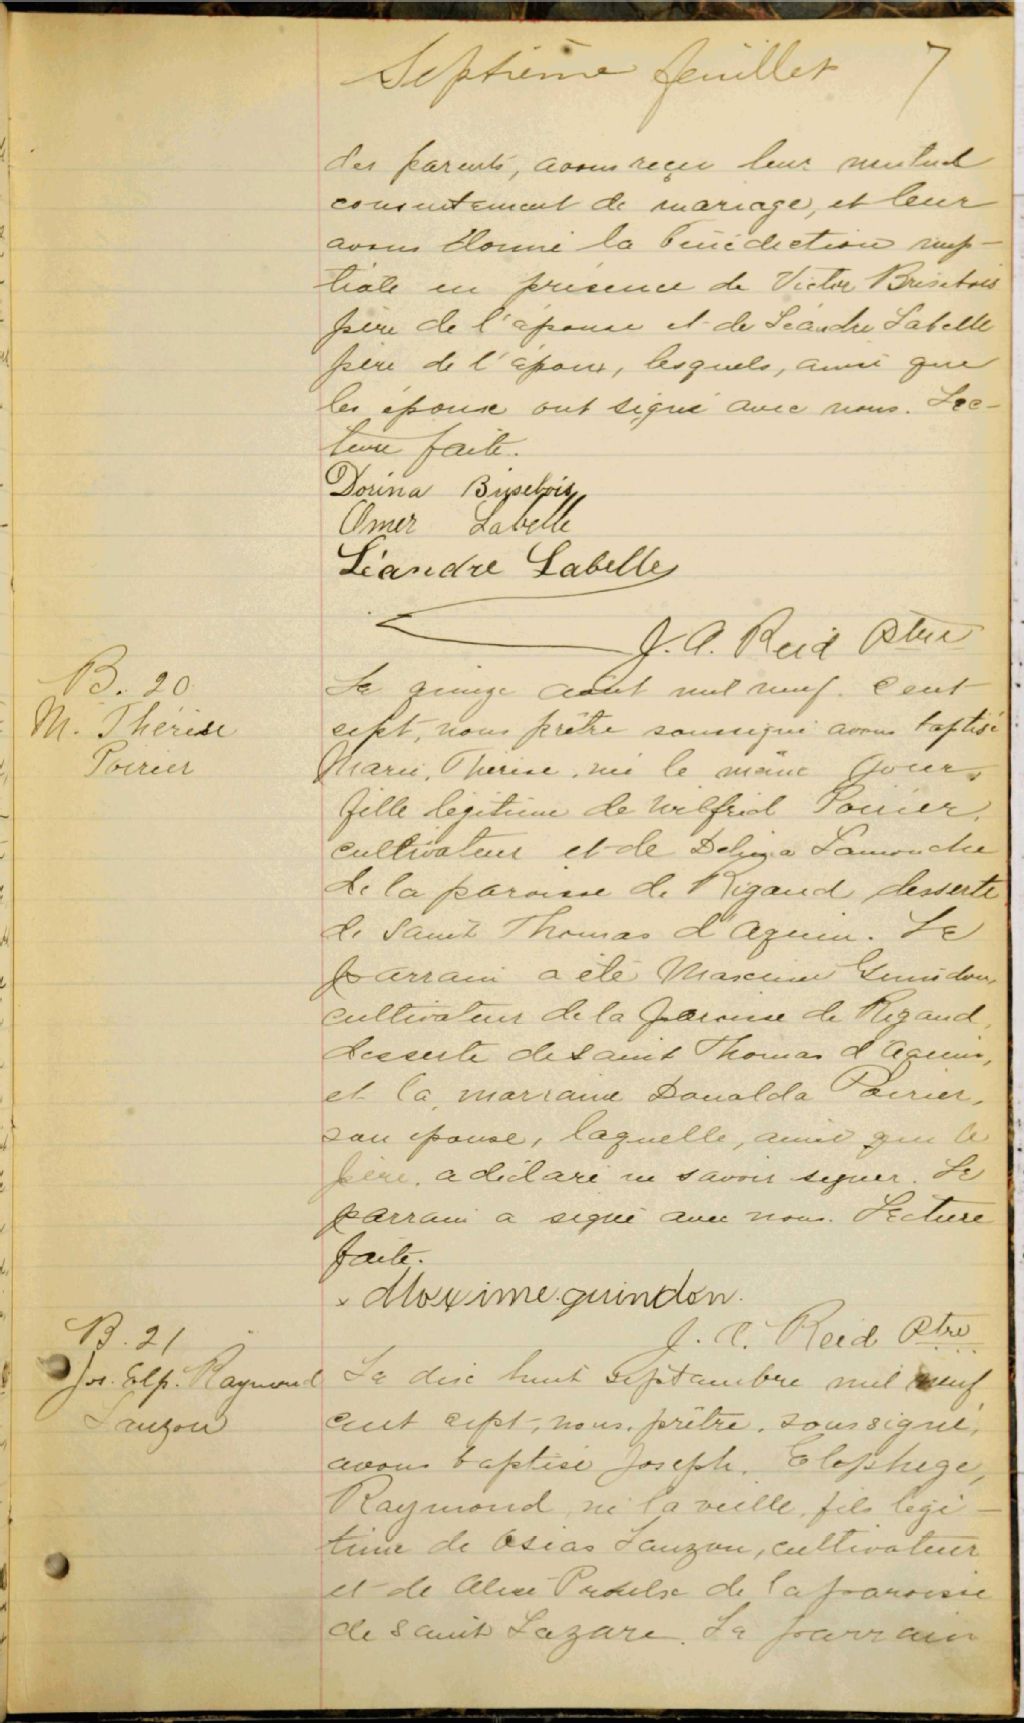 Septième feuillet 7
des parents, avons reçu leur mutuel
consentement de mariage, et leur
avons donné la bénédiction nup-
tiale en présence de Victor Brisebois
père de l'épouse et de Léandre Labelle
père de l'époux, lesquels, ainsi que
les époux ont signé avec nous. Lec-
ture faite.
Dorina Brisebois
Omer Labelle
Léandre Labelle
J. A. Reid Ptre
B. 20
M. Thérèse
Poirier
Le quinze août mil neuf cent
sept, nous prêtre soussigné avons baptisé
Marie, Thérèse, née le même jour,
fille légitime de Wilfrid Poirier,
cultivateur et de Delina Lamouche
de la paroisse de Rigaud, desserte
de Saint Thomas d'Aquin. Le
parrain a été Maxime Guindon,
cultivateur de la paroisse de Rigaud,
desserte de saint Thomas d'Aquin,
et la marraine Donalda Poirier,
son épouse, laquelle, ainsi que le
père, a déclaré ne savoir signer. Le
parrain a signé avec nous. Lecture
faite.
x Maxime guindon.
J. A. Reid Ptre
B. 21
Jos. Elp. Raymond
Lauzon
Le dix huit septembre mil neuf
cent sept, nous, prêtre, soussigné,
avons baptisé Joseph, Elophège,
Raymond, né la veille, fils légi-
time de Osias Lauzon, cultivateur
et de Alice Proulx de la paroisse
de saint Lazare. Le parrain